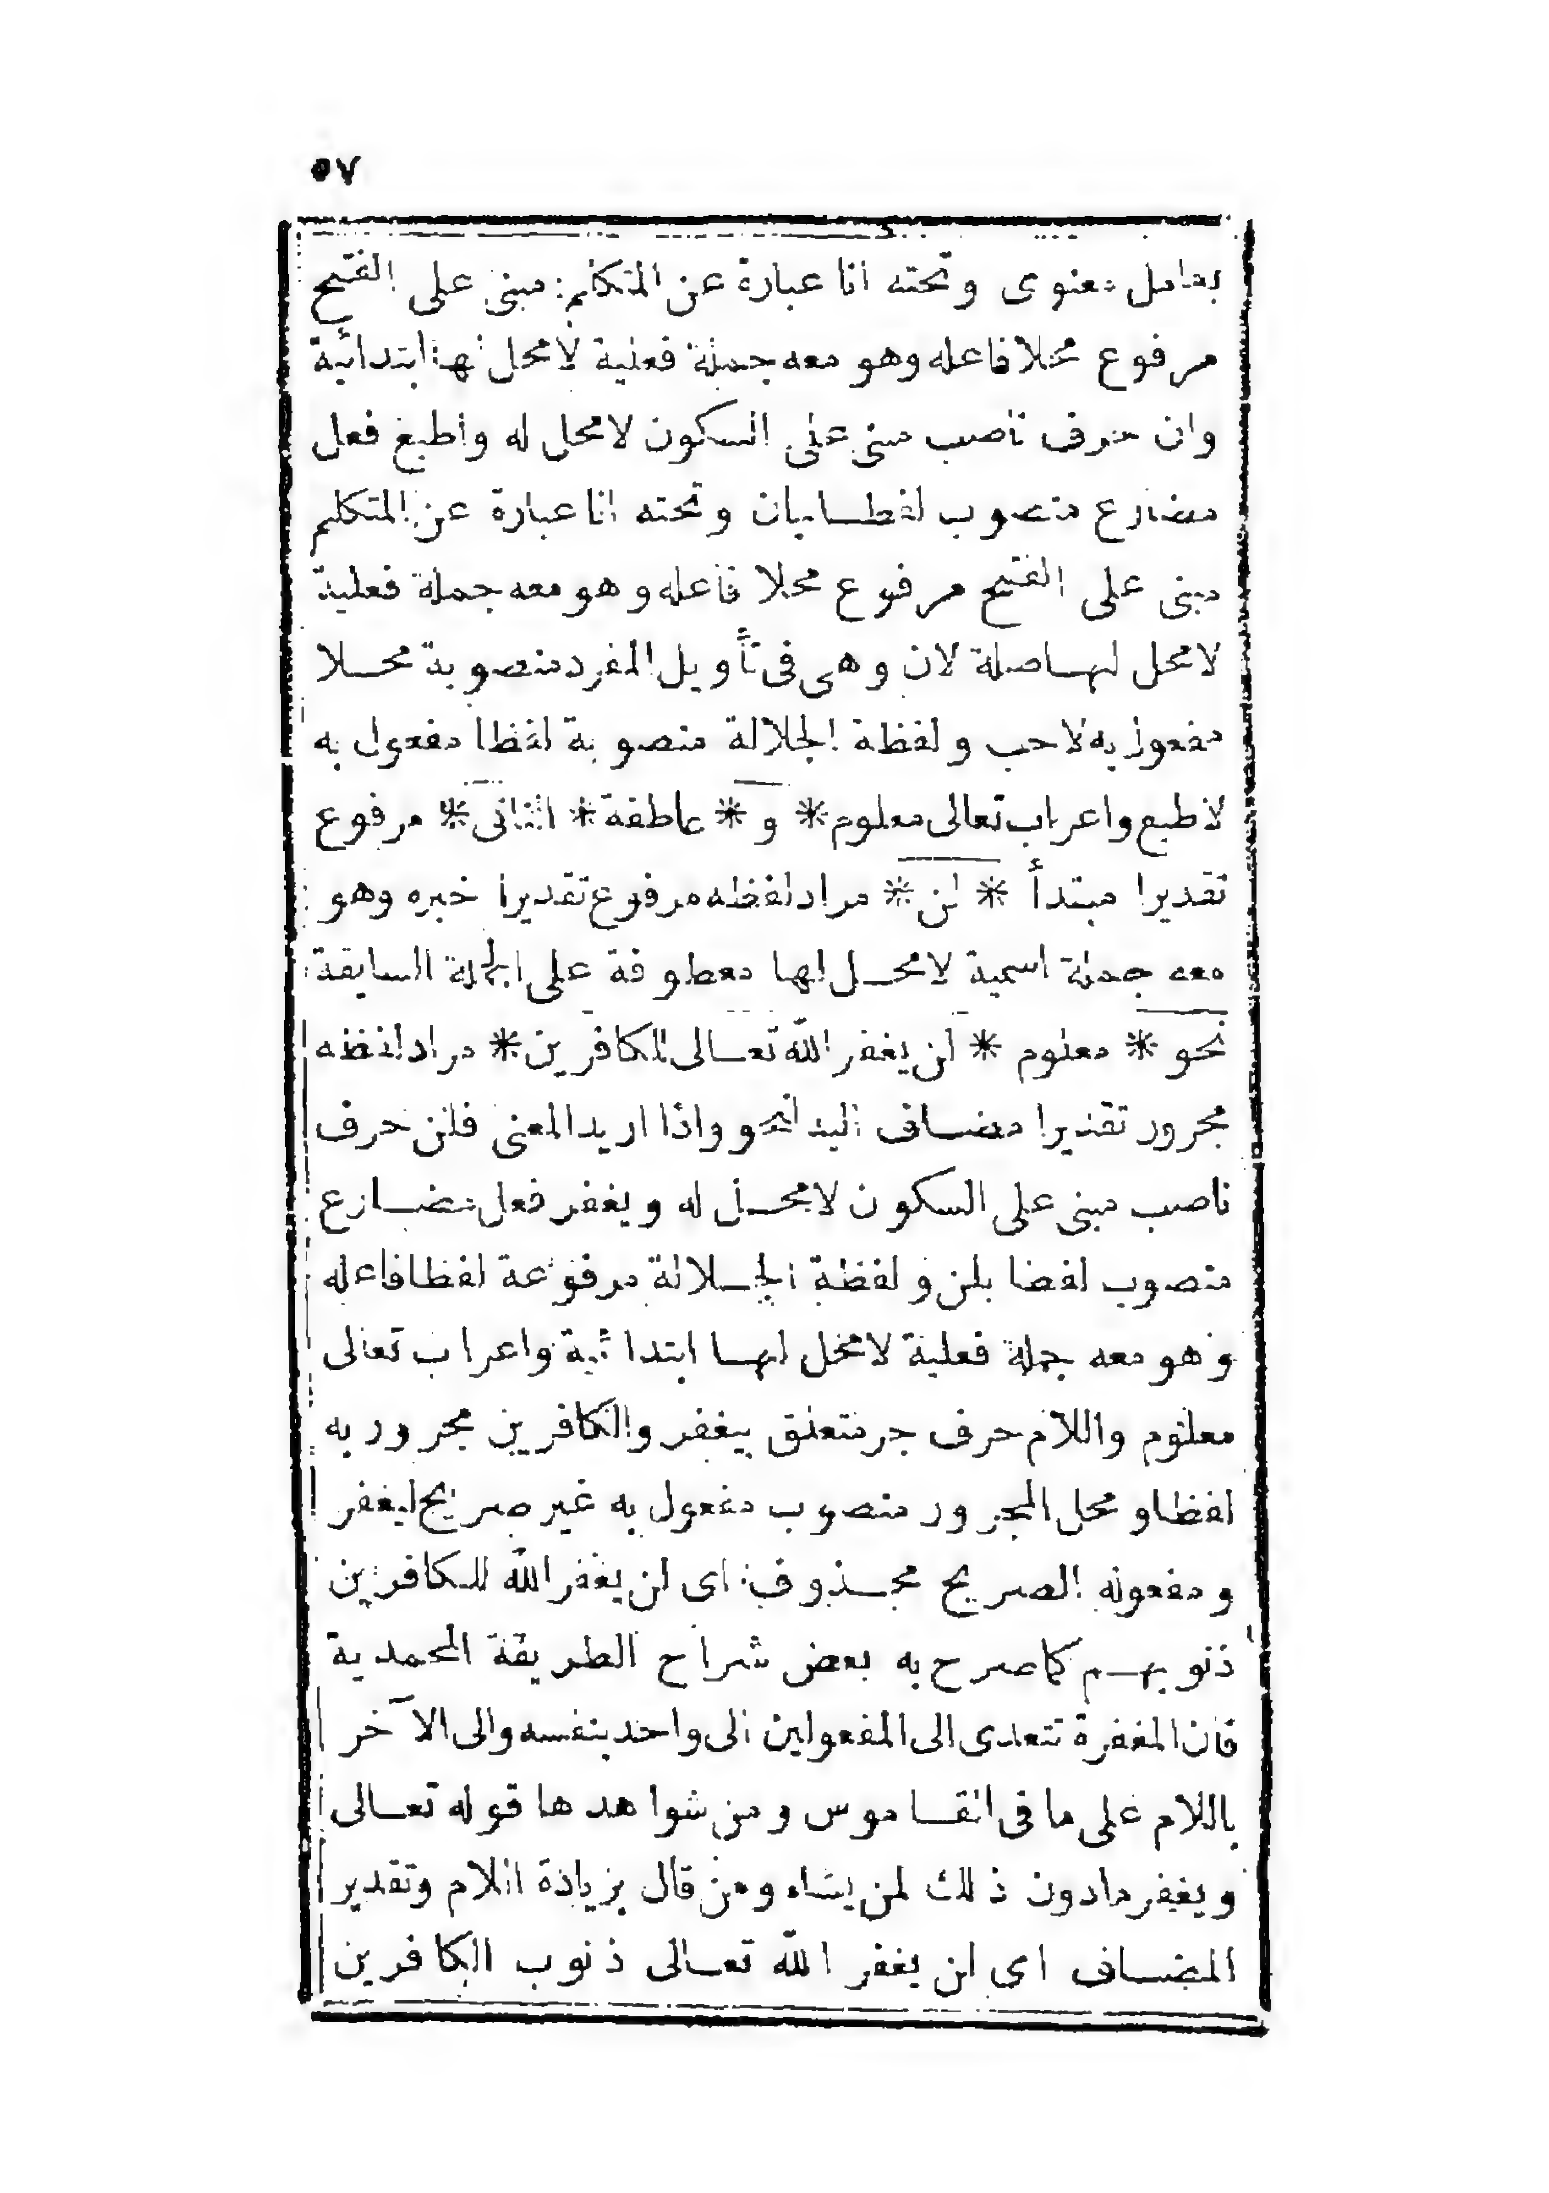 ٥٧
بعامل معنوى وتحته انا عبارة عن المتكلم مبنى على الفتح
مرفوع محلا فاعله وهو معه جملة فعلية لامحل لها ابتدائية
وان حرف ناصب مبنى على السكون لامحل له واطيع فعل
مضارع منصوب لفظا بان وتحته انا عبارة عن المتكلم
مبنى على الفتح مرفوع محلا فاعله وهو معه جملة فعلية
لامحل لها صلة لان وهى فى تأويل المفرد منصوبة محلا
مفعول به لاحب ولفظة الجلالة منصوبة لفظا مفعول به
لاطيع واعراب تعالى معلوم * و * عاطفة * الثانى * مرفوع
تقديرا مبتدأ * لن * مراد لفظه مرفوع تقديرا خبره وهو
معه جملة اسمية لامحل لها معطوفة على الجملة السابقة
نحو * معلوم * لن يغفر الله تعالى للكافرين * مراد لفظه
مجرور تقديرا مضاف اليه لنحو واذا اريد المعنى فلن حرف
ناصب مبنى على السكون لامحل له ويغفر فعل مضارع
منصوب لفظا بلن ولفظة الجلالة مرفوعة لفظا فاعله
وهو معه جملة فعلية لامحل لها ابتدائية واعراب تعالى
معلوم واللام حرف جر متعلق بيغفر والكافرين مجرور به
لفظا ومحل المجرور منصوب مفعول به غير صريح ليغفر
ومفعوله الصريح محذوف اى لن يغفر الله للكافرين
ذنوبهم كما صرح به بعض شراح الطريقة المحمدية
فان المغفرة تتعدى الى المفعولين الى واحد بنفسه والى الآخر
باللام على ما فى القاموس ومن شواهدها قوله تعالى
ويغفر مادون ذلك لمن يشاء ومن قال بزيادة اللام وتقدير
المضاف اى لن يغفر الله تعالى ذنوب الكافرين